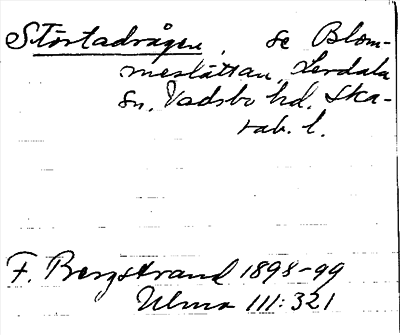 Störtadrågen, se Blom-
meslättan, Lerdala
sn. Vadsbo hd. Ska-
rab. l.
F. Bergstrand 1898-99
Ulma 111:321